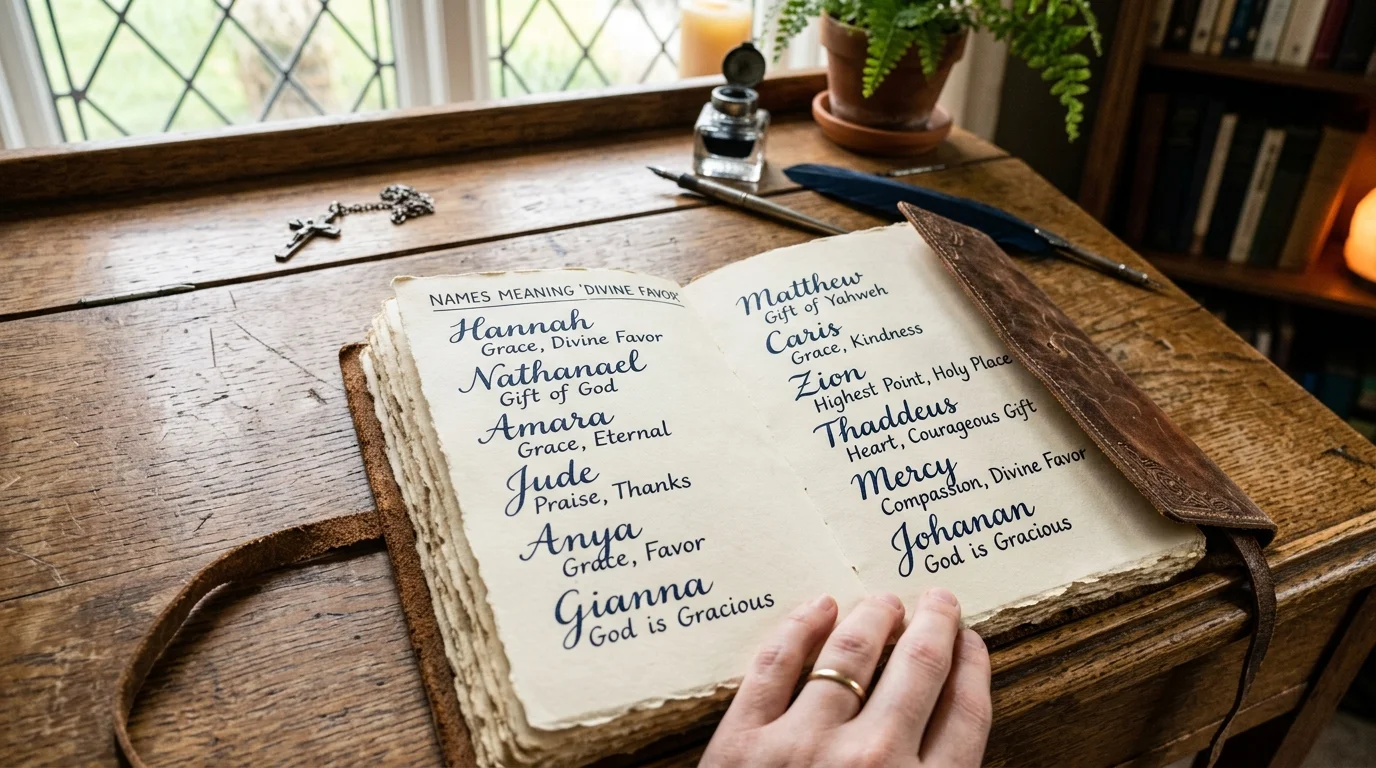 NAMES MEANING 'DIVINE FAVOR'
Hannah
Grace, Divine Favor
Nathanael
Gift of God
Amara
Grace, Eternal
Jude
Praise, Thanks
Anya
Grace, Favor
Gianna
God is Gracious
Matthew
Gift of Yahweh
Caris
Grace, Kindness
Zion
Highest Point, Holy Place
Thaddeus
Heart, Courageous Gift
Mercy
Compassion, Divine Favor
Johanan
God is Gracious